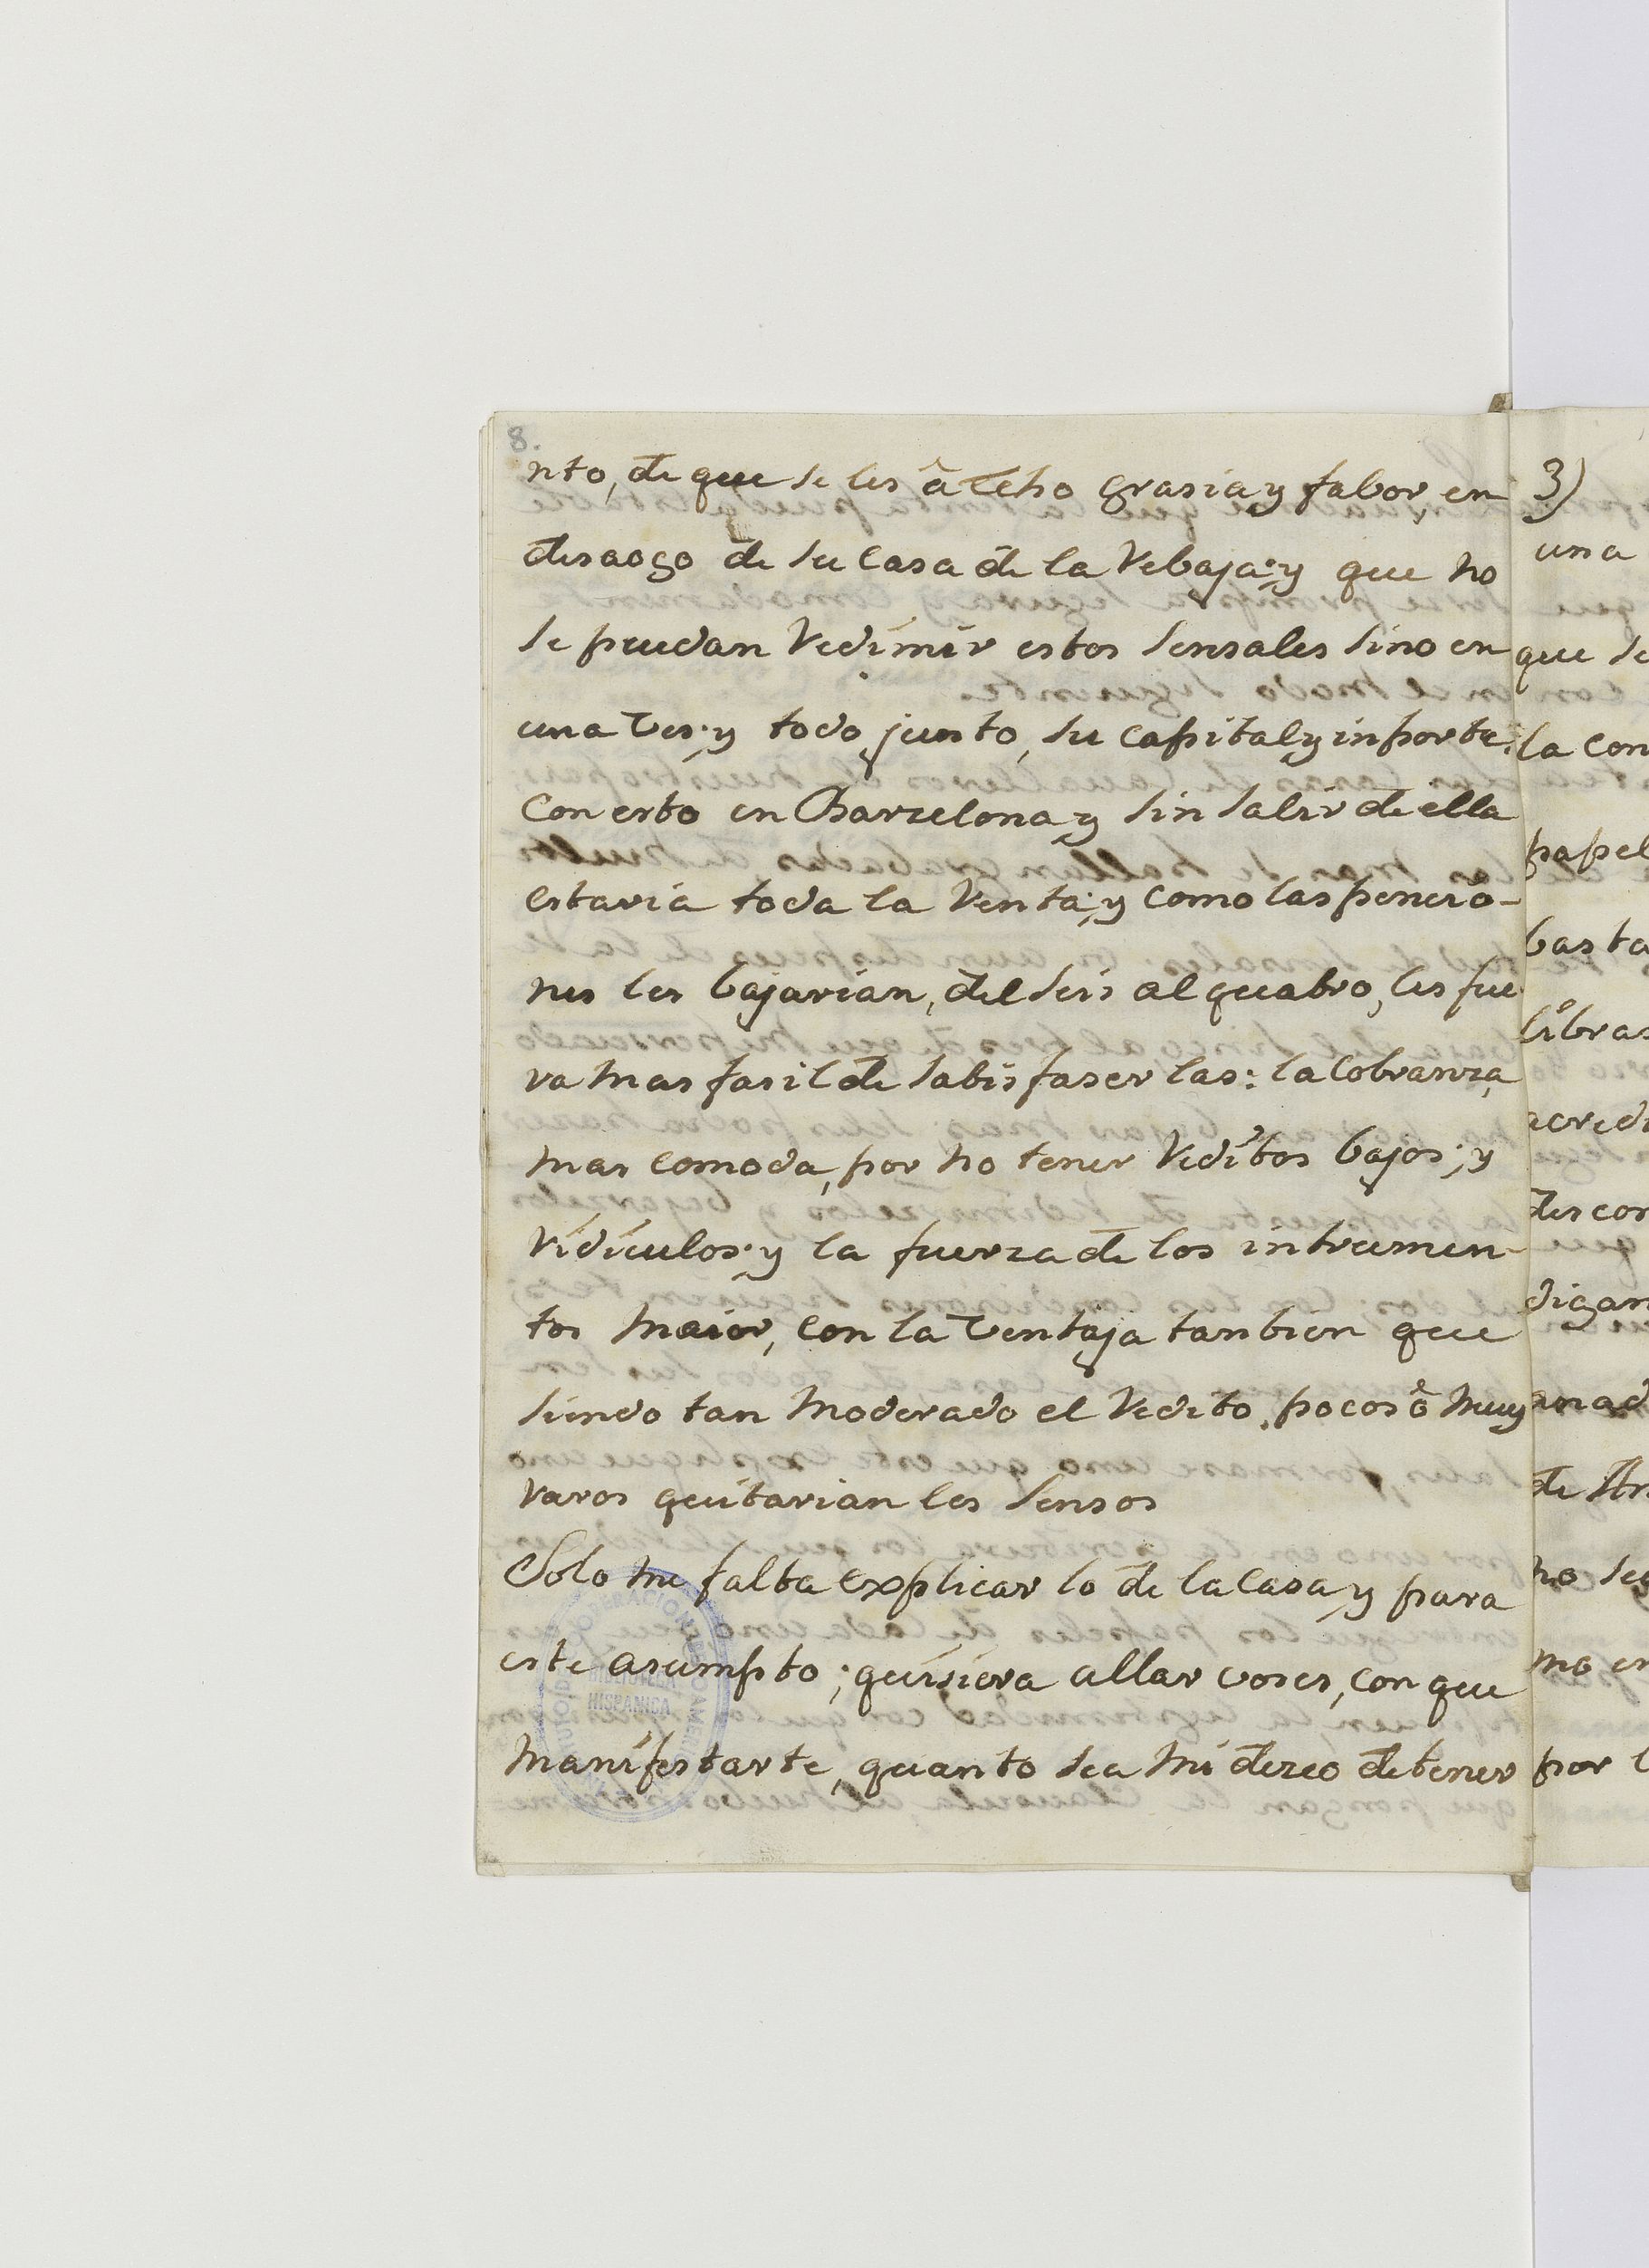 8.
nto, de que se les â echo grasia y fabor, en
desaogo de su casa de la rebaja; y que no
se puedan redimir estos sensales sino en
una ves; y todo junto, su capital y inporte.
Con esto en Barzelona y sin salir de ella
estaria toda la renta; y como las pencio-
nes les bajarian, del seis al quatro, les fue
ra mas fasil de satisfaser las: la cobranza,
mas comoda, por no tener reditos bajos; y
ridiculos; y la fuerza de los intrumen-
tos maior, con la ventaja tanbien que
siendo tan moderado el redito, pocos ô muy
raros quitarian les sensos
Solo me falta explicar lo de la casa, y para
este asumpto; quisiera allar voses, con que
manifestarte, quanto sea mi dezeo de tener
3)
una
que se
la con
papel
basta
libras
acredi
descon
digan
anad
de An
no
mo en
por l
BIBLIOTECA
HISPANICA